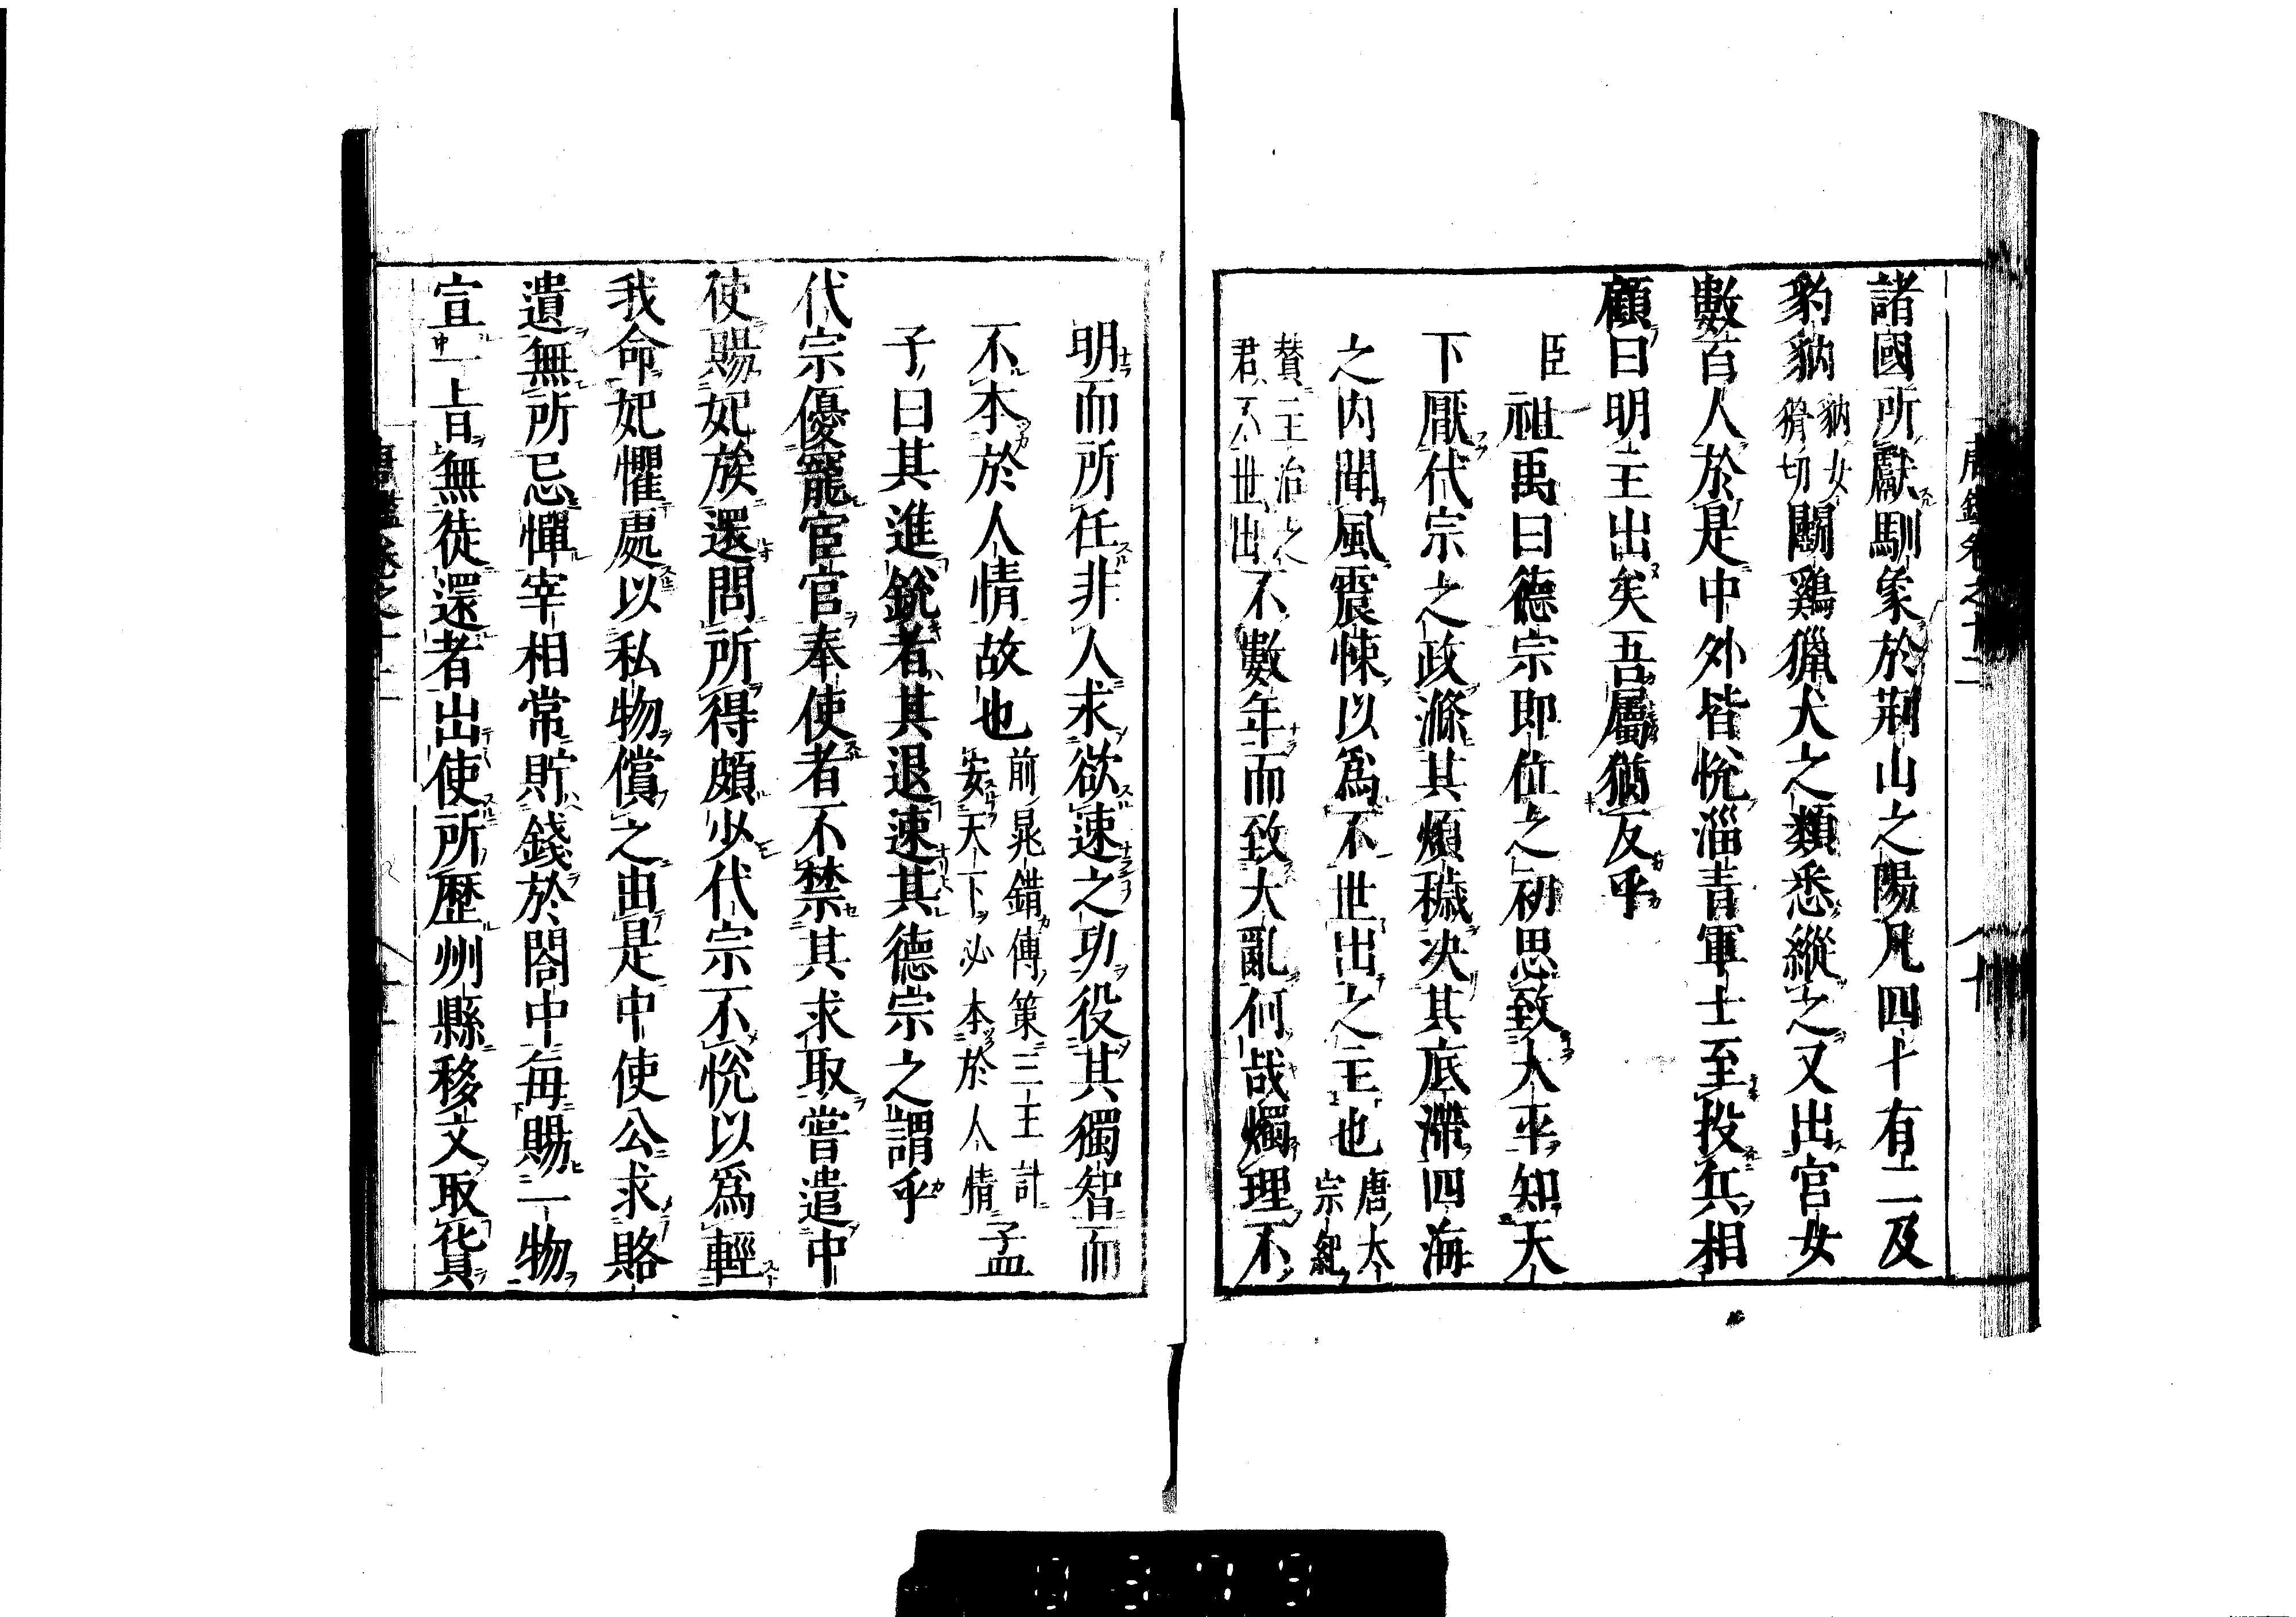 諸國所獻馴象於荊山之陽凡四十有二及
豹貀貀女猾切鬭鷄獵犬之類悉縱之又出宮女
數百人於是中外皆悅淄青軍士至投兵相
顧曰明主出矣吾屬猶反乎
臣祖禹曰德宗即位之初思致太平知天
下厭代宗之政滌其煩穢决其底滯四海
之内聞風震悚以爲不世出之主也唐太宗紀
贊主治之君不世出不數年而致大亂何哉燭理不
明而所任非人求欲速之功役其獨智而
不本於人情故也前晁錯傳策三王計安天下必本於人情孟
子曰其進銳者其退速其德宗之謂乎
代宗優寵宦官奉使者不禁其求取嘗遣中
使賜妃族還問所得頗少代宗不悅以爲輕
我命妃懼處以私物償之由是中使公求賂
遺無所忌憚宰相常貯錢於閤中每賜一物
宣一㫖無徒還者出使所歷州縣移文取貨